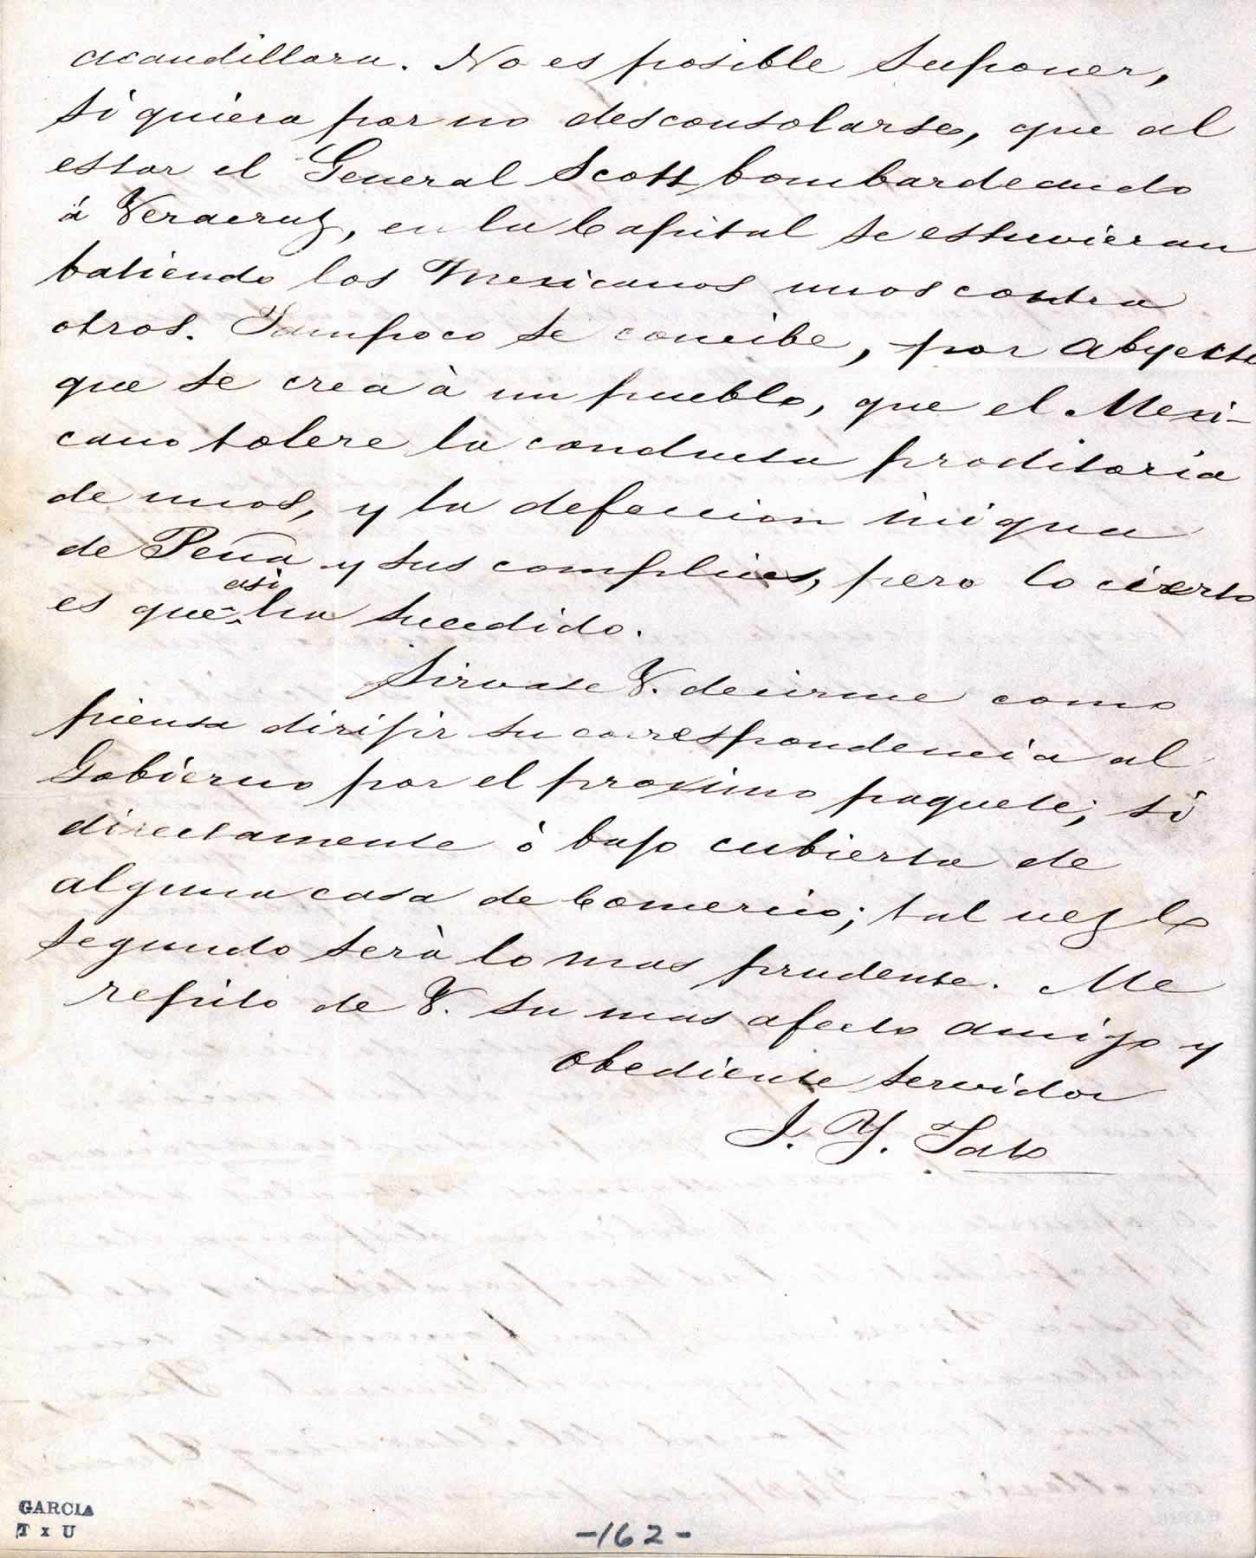 acaudillara. No es posible suponer,
siquiera por no desconsolarse, que al
estar el General Scott bombardeando
á Veracruz, en la Capital se estuvieran
batiendo los Mexicanos unos contra
otros. Tampoco se concibe, por abyecto
que se crea à un pueblo, que el Mexi-
cano tolere la conducta proditoria
de unos, y la defeccion inigua
de Peña y sus complices, pero lo cierto
asi
es que ha sucedido.
Sirvase V. decirme como
piensa dirijir su correspondencia al
Gobierno por el proximo paquete; si
directamente ò bajo cubierta de
alguna casa de Comercio; tal vez lo
segundo serà lo mas prudente. Me
repito de V. su mas afecto amigo y
obediente servidor
J. Y.
GARCIA
T x U
-162-